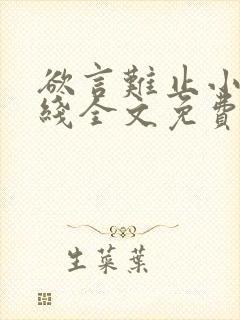 欲言難止小
綫全文免費
生菜葉